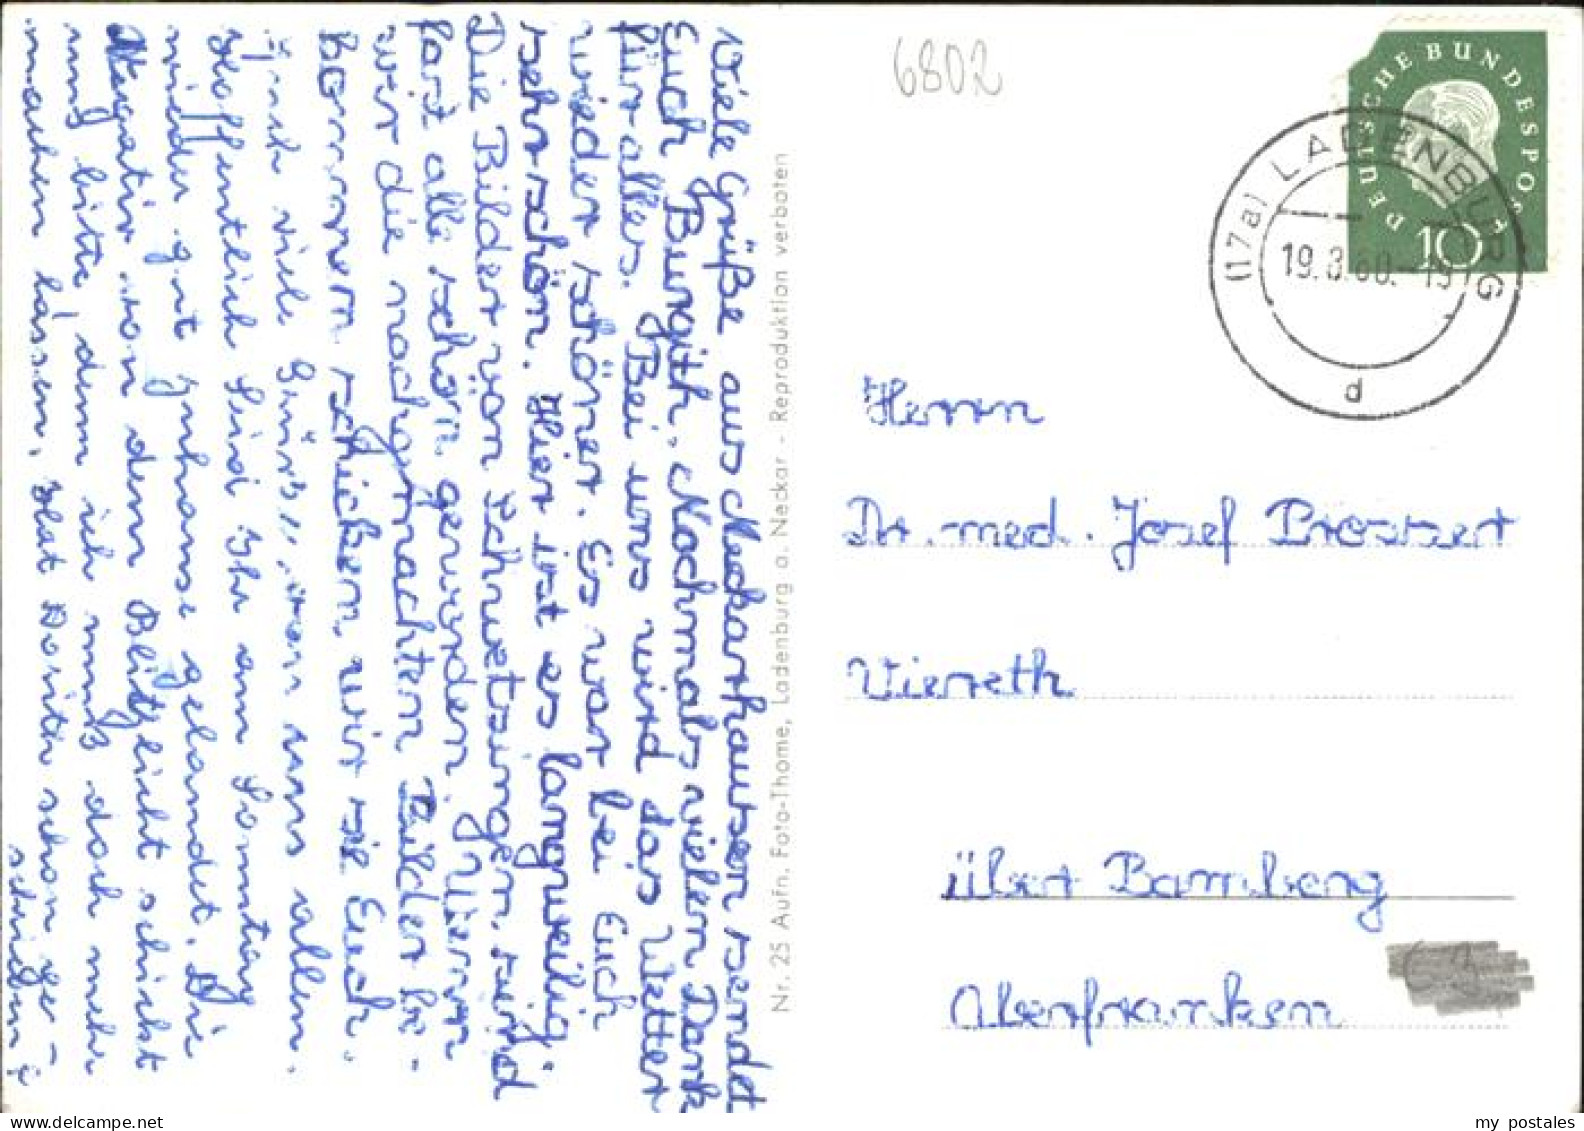 Viele Grüße aus Neckarhausen sendet
Euch Burgith. Nochmals vielen Dank
für alles. Bei uns wird das Wetter
wieder schöner. Es war bei Euch
sehr schön. Hier ist es langweilig.
Die Bilder von Schwetzingen sind
fast alle schön geworden. Wenn
wir die nachgemachten Bilder be-
kommen schicken wir sie Euch.
Auch viele Grüße von uns allen.
Hoffentlich seid Ihr am Sonntag
wieder gut zuhause gelandet. Die
Negativ von dem Blitzlicht schickt
uns bitte, denn ich muß doch mehr
machen lassen. Hat Dorita schon ge-
schrieben?
Nr. 25 Aufn. Foto-Thome, Ladenburg a. Neckar - Reproduktion verboten
6802
DEUTSCHE BUNDESPOST
10
(17a) LADENBURG
19.8.60.-19
d
Herrn
Dr. med. Josef Prossert
Viereth
über Bamberg
Oberfranken
my postales